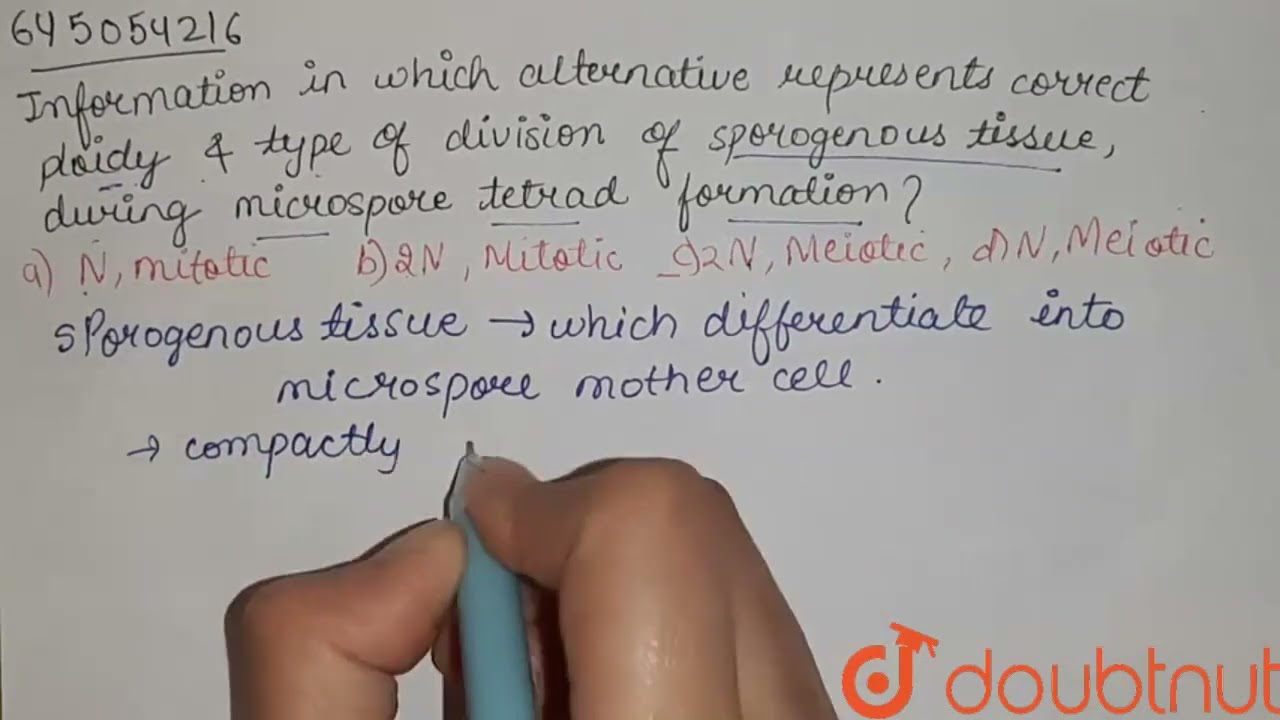 645054216
Information in which alternative represents correct
ploidy & type of division of sporogenous tissue,
during microspore tetrad formation?
a) N, mitotic b) 2N, Mitotic c) 2N, Meiotic, d) N, Meiotic
sporogenous tissue → which differentiate into
microspore mother cell.
→ compactly
doubtnut